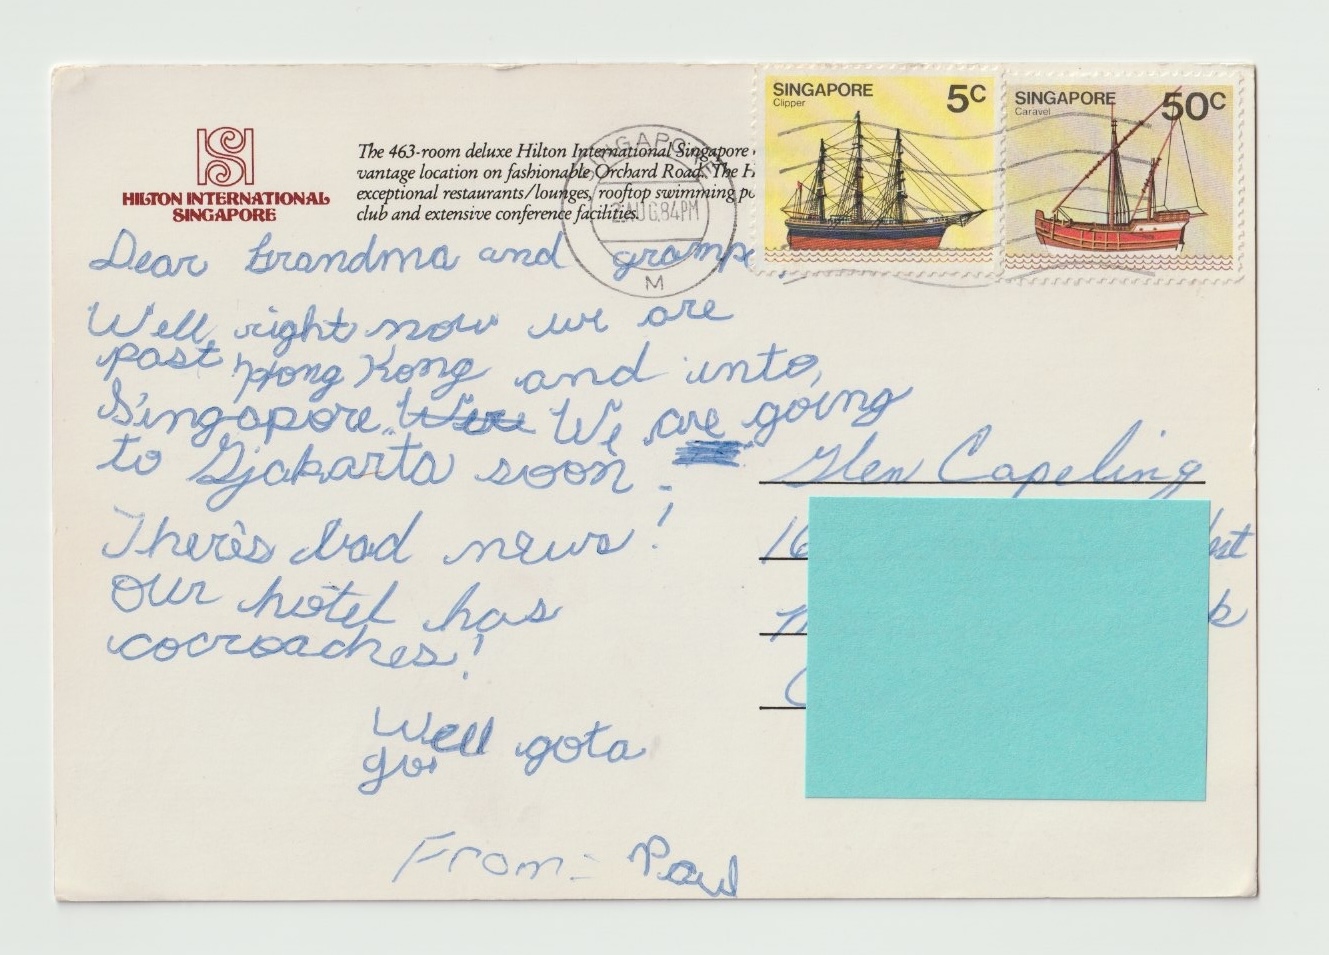 HILTON INTERNATIONAL
SINGAPORE
The 463-room deluxe Hilton International Singapore
vantage location on fashionable Orchard Road. The H
exceptional restaurants/lounges, rooftop swimming po
club and extensive conference facilities.
SINGAPORE
Clipper
5C
SINGAPORE
Caravel
50C
SINGAPORE
AUG 84 PM
M
Dear Grandma and grampa,
Well, right now we are
past Hong Kong and into
Singapore. We are going
to Djakarta soon.
There's bad news!
Our hotel has
cocroaches!
Well gota
go.
From: Paul
Glen Capeling
16